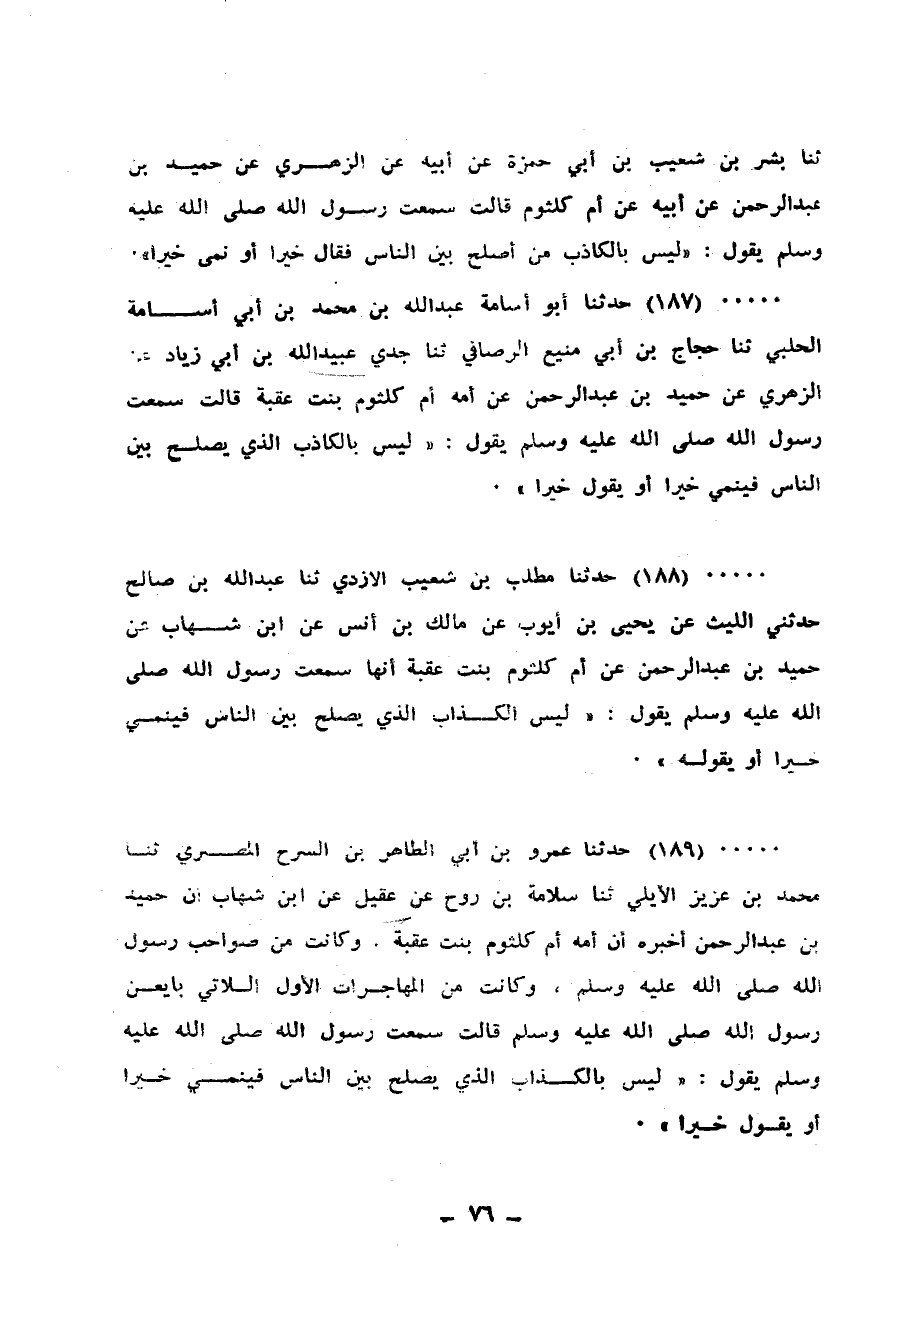 ثنا بشر بن شعيب بن أبي حمزة عن أبيه عن الزهـــري عن حميــد بن
عبدالرحمن عن أبيه عن أم كلثوم قالت سمعت رســول الله صلى الله عليه
وسلم يقول : «ليس بالكاذب من أصلح بين الناس فقال خيرا أو نمى خيرا» ·
····· (١٨٧) حدثنا أبو أسامة عبدالله بن محمد بن أبي أســـــامة
الحلبي ثنا حجاج بن أبي منيع الرصافي ثنا جدي عبيدالله بن أبي زياد عن
الزهري عن حميد بن عبدالرحمن عن أمه أم كلثوم بنت عقبة قالت سمعت
رسول الله صلى الله عليه وسلم يقول : « ليس بالكاذب الذي يصلــح بين
الناس فينمي خيرا أو يقول خيرا » ·
····· (١٨٨) حدثنا مطلب بن شعيب الازدي ثنا عبدالله بن صالح
حدثني الليث عن يحيى بن أيوب عن مالك بن أنس عن ابن شـــهاب عن
حميد بن عبدالرحمن عن أم كلثوم بنت عقبة أنها سمعت رسول الله صلى
الله عليه وسلم يقول : « ليس الكـــذاب الذي يصلح بين الناس فينمــي
خــيرا أو يقولــه » ·
····· (١٨٩) حدثنا عمرو بن أبي الطاهر بن السرح المصــري ثنــا
محمد بن عزيز الأيلي ثنا سلامة بن روح عن عقيل عن ابن شهاب أن حميد
بن عبدالرحمن أخبره أن أمه أم كلثوم بنت عقبة . وكانت من صواحب رسول
الله صلى الله عليه وسلم ، وكانت من المهاجرات الأول الــلاتي بايعــن
رسول الله صلى الله عليه وسلم قالت سمعت رسول الله صلى الله عليه
وسلم يقول : « ليس بالكـــذاب الذي يصلح بين الناس فينمــــي خــيرا
أو يقــول خــيرا » ·
ــ ٧٦ ــ